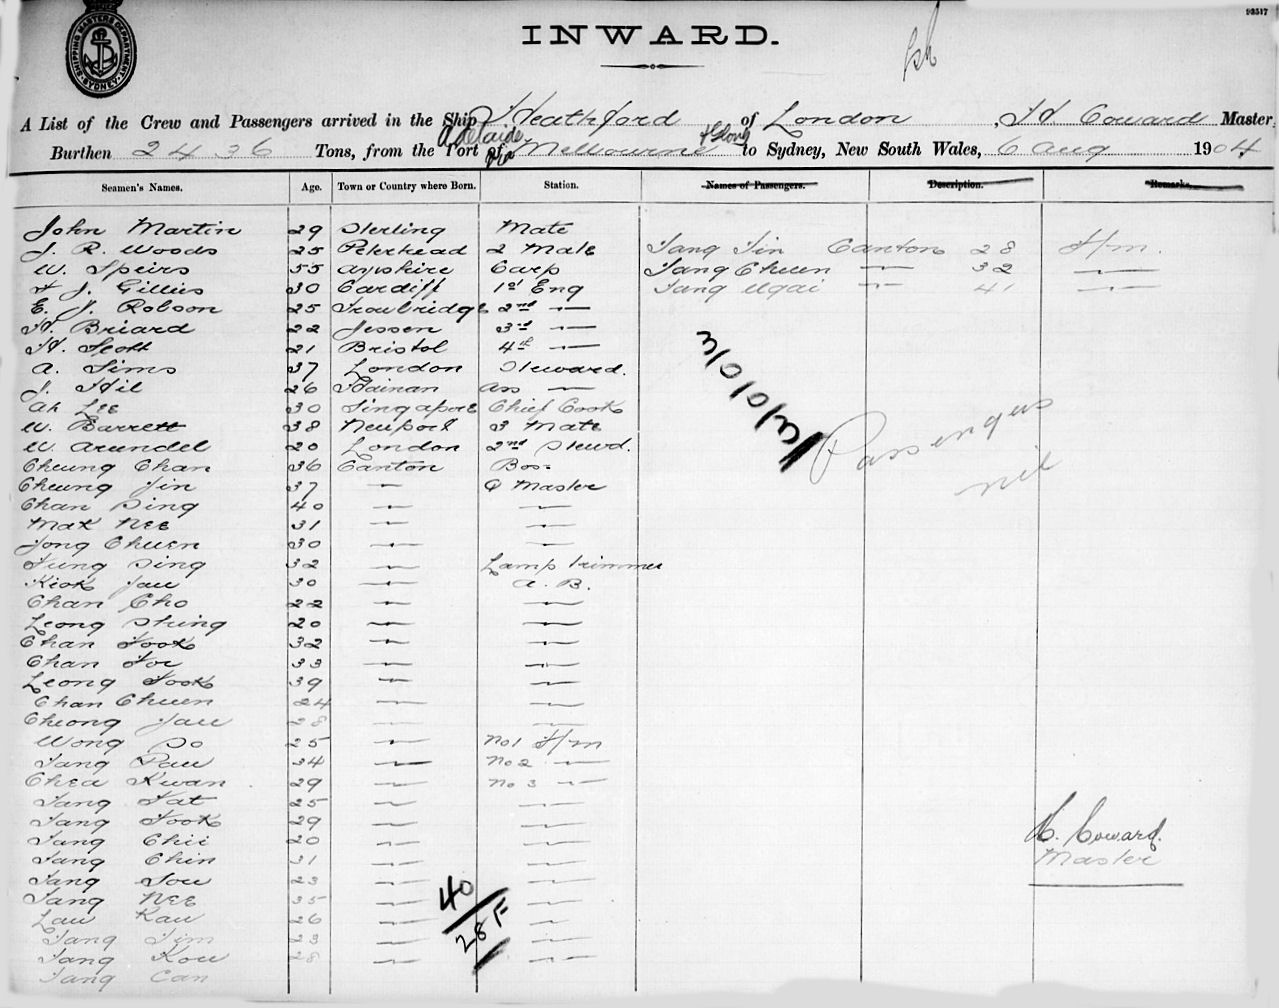 93517
SHIPPING MASTERS DEPARTMENT SYDNEY
INWARD.
A List of the Crew and Passengers arrived in the Ship Heathford of London, H Coward Master
Adelaide
Burthen 2436 Tons, from the Port of Melbourne to Sydney, New South Wales, 6 Aug 1904
Seamen's Names. Age. Town or Country where Born. Station. Names of Passengers. Description. Remarks.
John Martin 29 Sterling Mate
J. R. Woods 25 Peterhead 2 Mate Tang Tin Canton 28 F/m.
W. Speirs 55 Ayrshire Carp Tang Chuen — 32 —
H J. Gillies 30 Cardiff 1st Eng Tang Ugai — 41 —
E. J. Robson 25 Trowbridge 2nd —
H. Briard 22 Jessen 3rd —
H. Scott 21 Bristol 4th —
A. Sims 37 London Steward.
J. Hil 26 Hainan Ass —
Ah Lee 30 Singapore Chief Cook
W. Barrett 38 Newport 3 Mate
W. Arundel 20 London 2nd Stewd.
Passengers
nil
Cheung Chan 36 Canton Bos:
Cheung Jin 37 — Q Master
Chan Sing 40 — —
Mak Nee 31 — —
Jong Chuen 30 — —
Tung Sing 32 — Lamp trimmer
Kiok Jau 30 — A. B.
Chan Cho 22 — —
Leong Shing 20 — —
Chan Fook 32 — —
Chan Foe 33 — —
Leong Fook 39 — —
Chan Chuen 24 — —
Cheong Jau 28 — —
Wong So 25 — No 1 F/m
Tang Pau 34 — No 2 —
Chea Kwan 29 — No 3 —
Tang Fat 25 — —
Tang Fook 29 — —
Tang Chii 20 — —
Tang Chin 31 — —
Tang Sou 23 — —
Tang Nee 35 — —
Lau Kau 26 — —
Tang Tim 23 — —
Tang Kou 28 — —
Tang Can
40
28 F
H. Coward.
Master